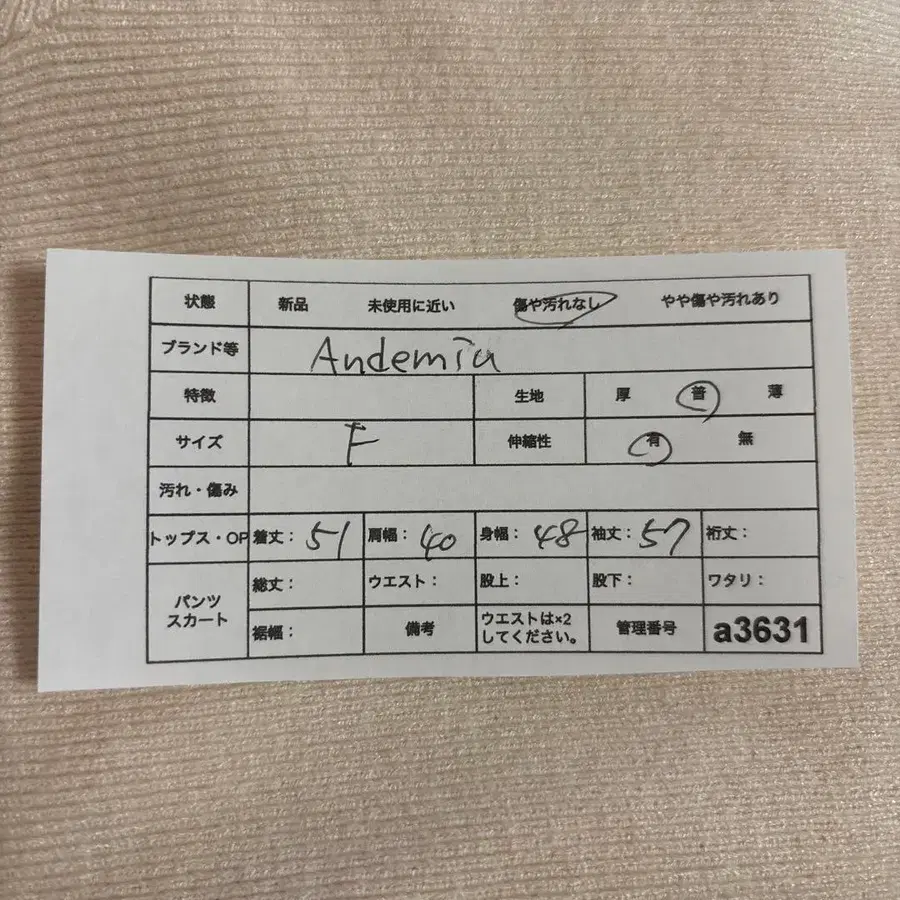 状態 新品 未使用に近い 傷や汚れなし やや傷や汚れあり
ブランド等 Andemiu
特徴 生地 厚 普 薄
サイズ F 伸縮性 有 無
汚れ・傷み
トップス・OP 着丈：51 肩幅：40 身幅：48 袖丈：57 裄丈：
パンツ スカート 総丈： ウエスト： 股上： 股下： ワタリ：
裾幅： 備考 ウエストは×2 してください。 管理番号 a3631